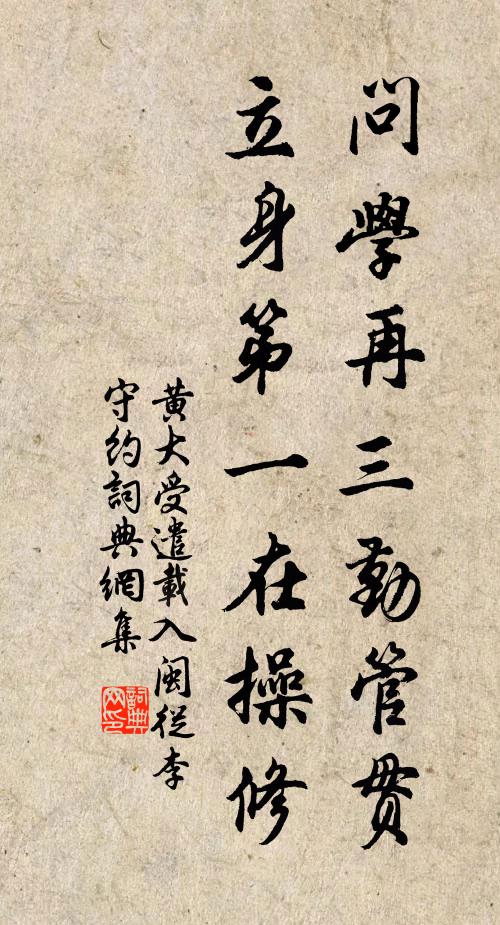 問學再三勤管貫
立身第一在操修
黃大受遣載入閩從李
守約詞典網集
詞典
网印